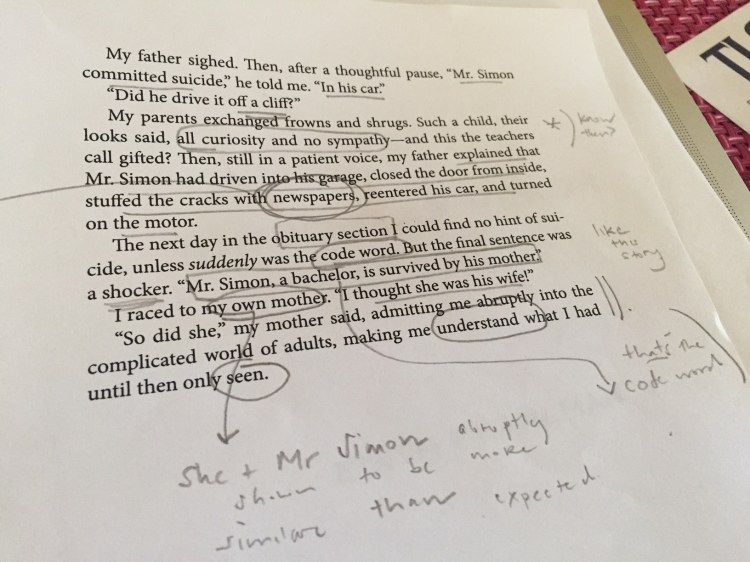 My father sighed. Then, after a thoughtful pause, “Mr. Simon
committed suicide,” he told me. “In his car.”
“Did he drive it off a cliff?”
My parents exchanged frowns and shrugs. Such a child, their
looks said, all curiosity and no sympathy—and this the teachers
call gifted? Then, still in a patient voice, my father explained that
Mr. Simon had driven into his garage, closed the door from inside,
stuffed the cracks with newspapers, reentered his car, and turned
on the motor.
The next day in the obituary section I could find no hint of sui-
cide, unless suddenly was the code word. But the final sentence was
a shocker. “Mr. Simon, a bachelor, is survived by his mother.”
I raced to my own mother. “I thought she was his wife!”
“So did she,” my mother said, admitting me abruptly into the
complicated world of adults, making me understand what I had
until then only seen.
know
then?
like
this
story
that's the
code word
she + Mr Simon abruptly
shown to be more
similar than expected.